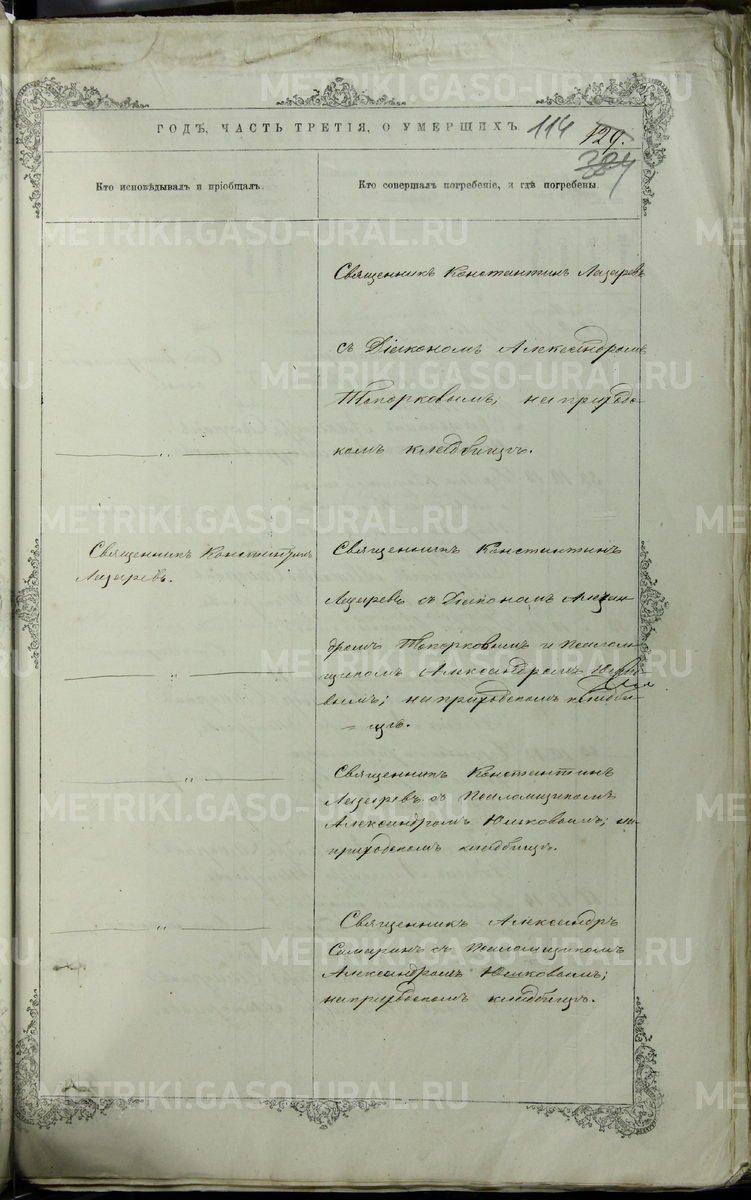 ГОДЪ, ЧАСТЬ ТРЕТІЯ, О УМЕРШИХЪ. 114 129.
384
Кто исповѣдывалъ и пріобщалъ.
Кто совершалъ погребеніе, и гдѣ погребены.
Священникъ Константинъ Лазаревъ
съ Діакономъ Александромъ
Топорковымъ; на приход-
скомъ кладбищѣ.
— „ —
Священникъ Константинъ
Лазаревъ.
Священникъ Константинъ
Лазаревъ съ Діакономъ Алексан-
дромъ Топорковымъ и Псалом-
щикомъ Александромъ
вымъ; на приходскомъ кладби-
— щѣ.
— „ —
Священникъ Константинъ
Лазаревъ съ Псаломщикомъ
Александромъ Юшковымъ; на
приходскомъ кладбищѣ.
— „ —
Священникъ Александръ
Самаринъ съ Псаломщикомъ
Александромъ Юшковымъ;
на приходскомъ кладбищѣ.
— „ —
METRIKI.GASO-URAL.RU